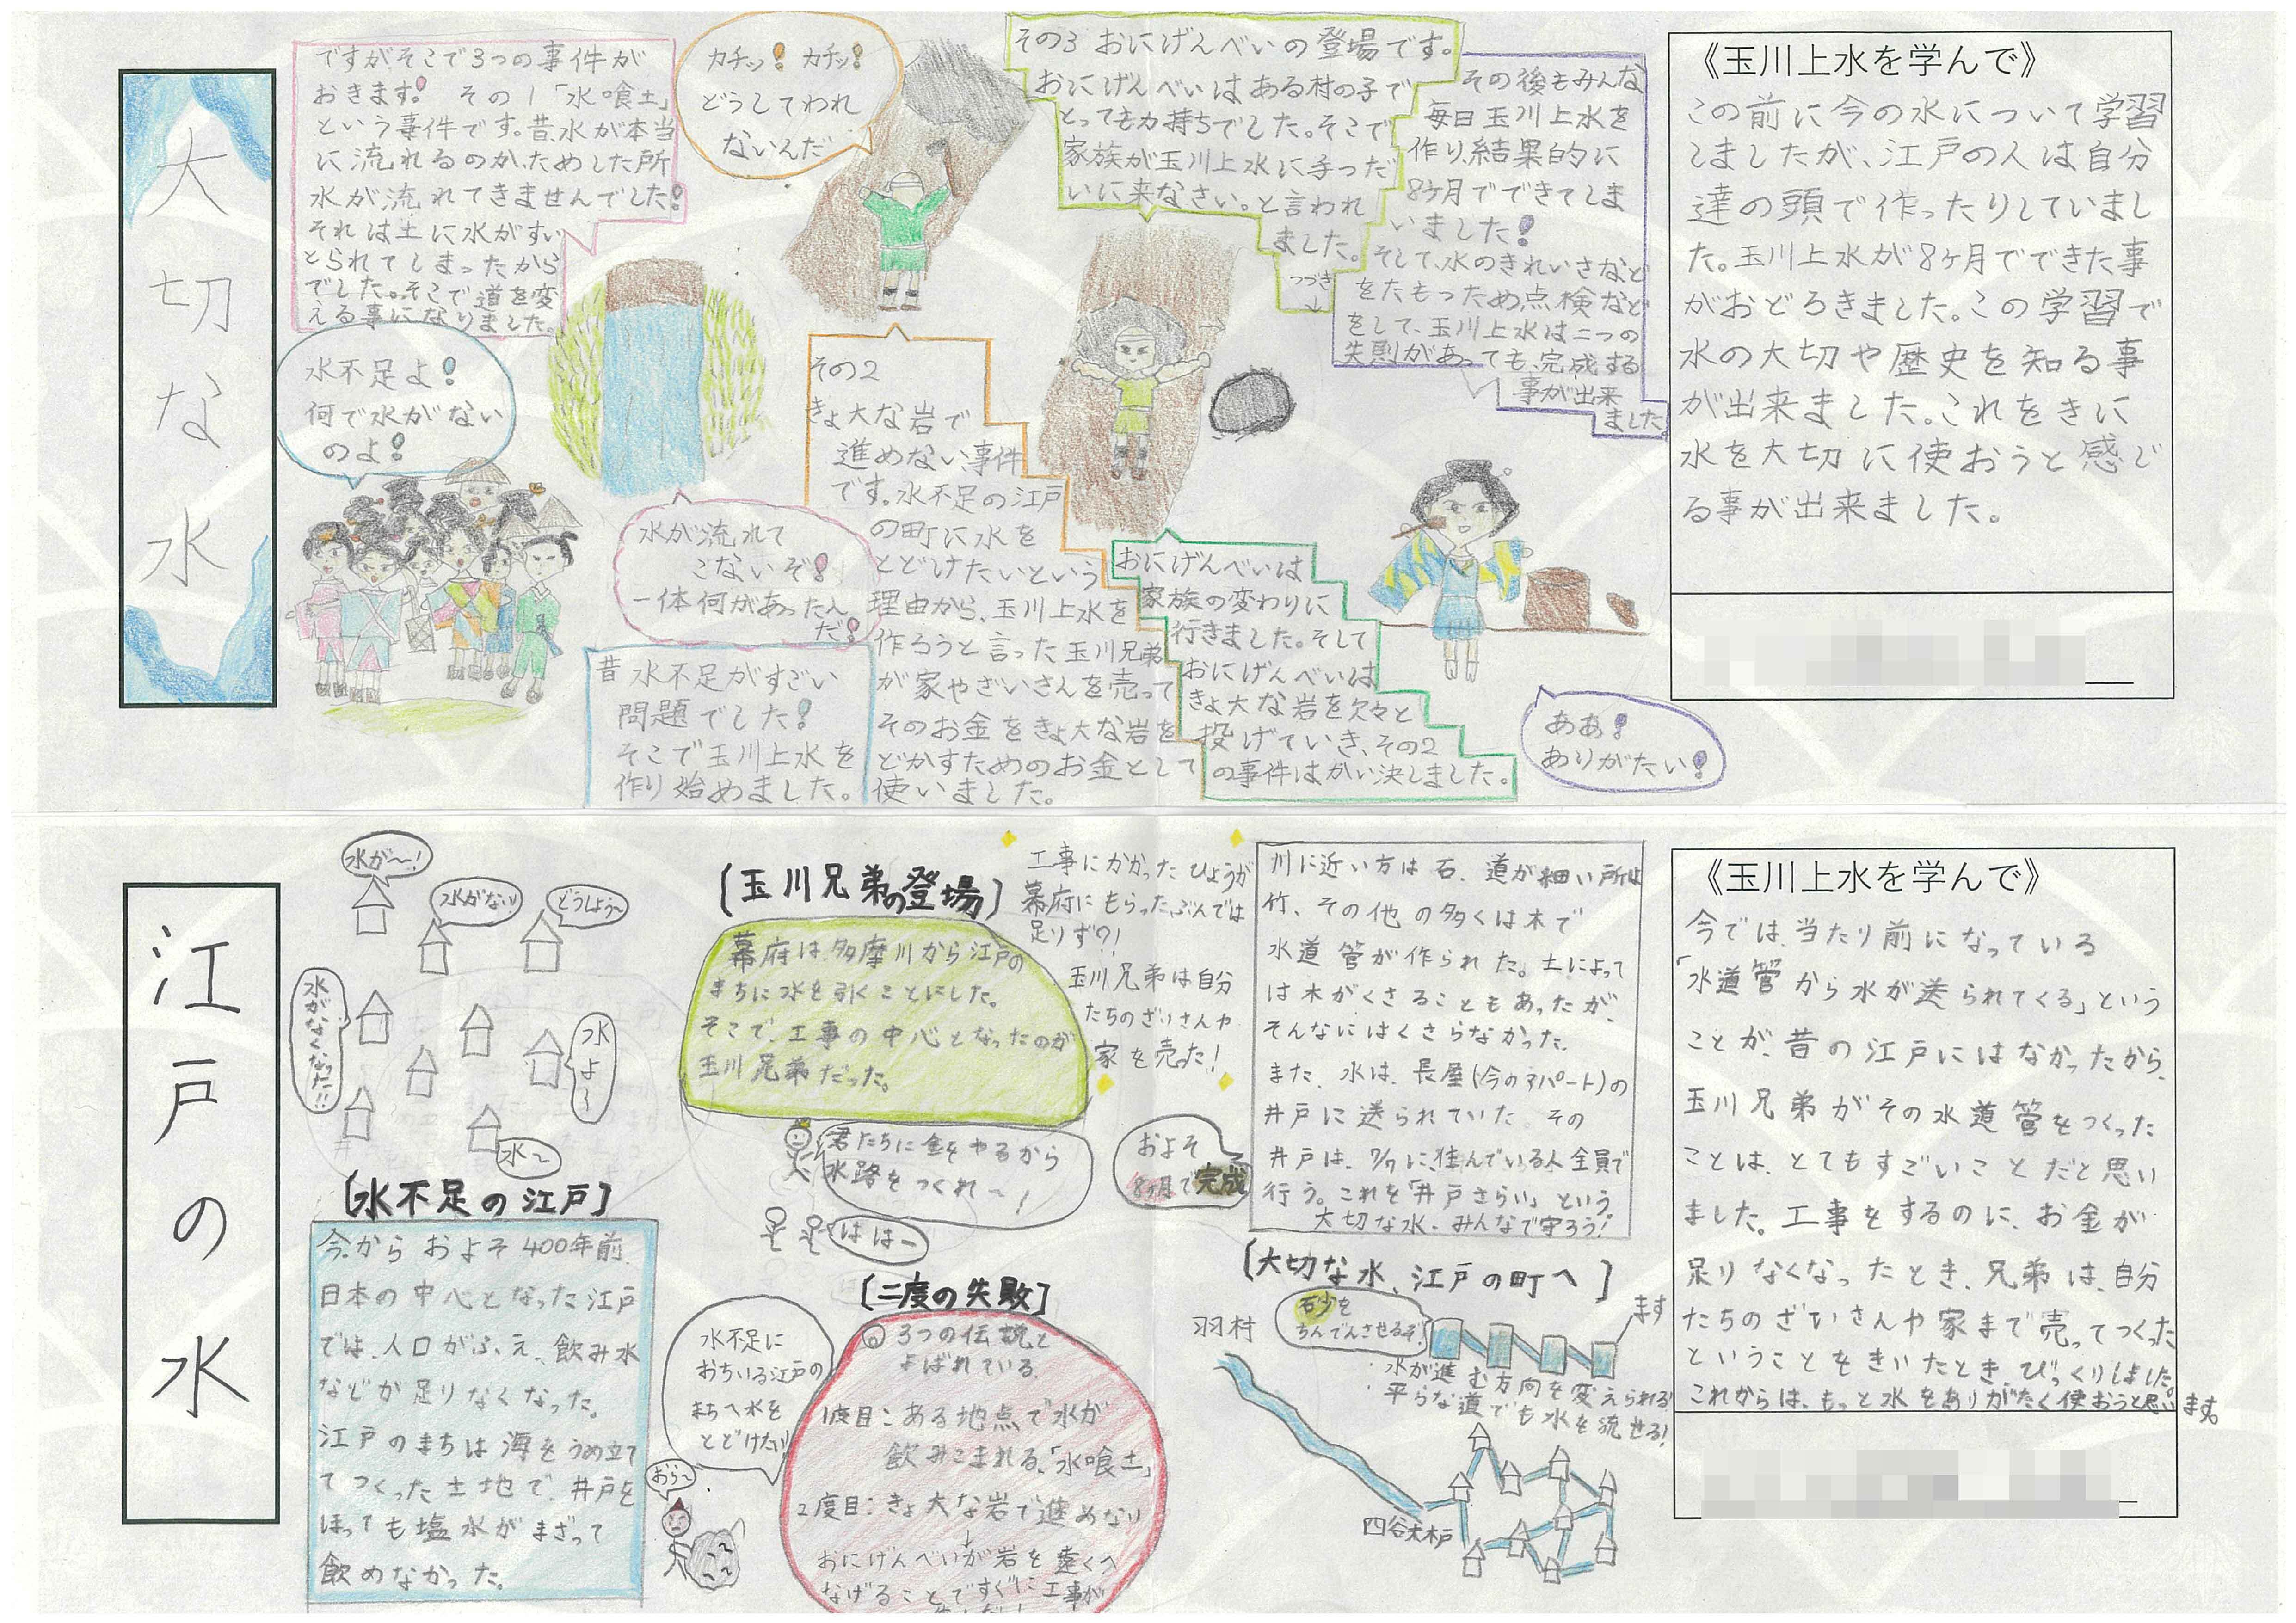 大切な水
昔水不足がすごい
問題でした!
そこで玉川上水を
作り始めました。
水不足よ!
何で水がない
のよ!
ですがそこで3つの事件が
おきます! その1「水喰土」
という事件です。昔、水が本当
に流れるのか、ためした所
水が流れてきませんでした!
それは土に水がすい
とられてしまったから
でした。そこで道を変
える事になりました。
水が流れて
こないぞ!
一体何があったん
だ!
その2
きょ大な岩で
進めない、事件
です。水不足の江戸
の町に水を
とどけたいという
理由から、玉川上水を
作ろうと言った玉川兄弟
が家やざいさんを売って
そのお金をきょ大な岩を
どかすためのお金として
使いました。
カチッ! カチッ!
どうしてわれ
ないんだ
その3 おにげんべいの登場です。
おにげんべいはある村の子で
とっても力持ちでした。そこで
家族が玉川上水に手つだ
いに来なさい。と言われ
ました。
つづき
↓
おにげんべいは
家族の変わりに
行きました。そして
おにげんべいは
きょ大な岩を欠々と
投げていき、その2
の事件はかい決しました。
その後もみんな
毎日玉川上水を
作り、結果的に
8ヶ月でできてしま
いました!
そして、水のきれいさなど
をたもつため点検など
をして、玉川上水は二つの
失則があっても、完成する
事が出来
ました。
ああ!
ありがたい!
《玉川上水を学んで》
この前に今の水について学習
しましたが、江戸の人は自分
達の頭で作ったりしていまし
た。玉川上水が8ヶ月でできた事
がおどろきました。この学習で
水の大切や歴史を知る事
が出来ました。これをきに
水を大切に使おうと感じ
る事が出来ました。
江戸の水
水が〜!
水がない
どうしよう〜
水がなくなった!!
水よ〜
水〜
【水不足の江戸】
今からおよそ400年前、
日本の中心となった江戸
では、人口がふえ、飲み水
などが足りなくなった。
江戸のまちは海をうめ立て
てつくった土地で、井戸を
ほっても塩水がまざって
飲めなかった。
【玉川兄弟の登場】
幕府は、多摩川から江戸の
まちに水を引くことにした。
そこで、工事の中心となったのが
玉川兄弟だった。
君たちに金をやるから
水路をつくれ〜!
はは〜
工事にかかったひようが
幕府にもらったぶんでは
足りず?!
玉川兄弟は自分
たちのざいさんや
家を売った!
およそ
8ヶ月で完成
【二度の失敗】
水不足に
おちいる江戸の
まちへ水を
とどけたい
おら〜
◎3つの伝説と
よばれている。
1度目:ある地点で水が
飲みこまれる、「水喰土」
2度目:きょ大な岩で進めない
↓
おにげんべいが岩を遠くへ
なげることですぐに工事が
川に近い方は石、道が細い所は
竹、その他の多くは木で
水道管が作られた。土によって
は木がくさることもあったが、
そんなにはくさらなかった。
また、水は、長屋(今のアパート)の
井戸に送られていた。その
井戸は、7/7に、住んでいる人全員で
行う。これを「井戸さらい」という。
大切な水、みんなで守ろう!
【大切な水、江戸の町へ】
羽村
石少を
ちんでんさせるぞ!
ます
・水が進む方向を変えられる!
・平らな道でも水を流せる!
四谷大木戸
《玉川上水を学んで》
今では、当たり前になっている
「水道管から水が送られてくる」という
ことが、昔の江戸にはなかったから、
玉川兄弟がその水道管をつくった
ことは、とてもすごいことだと思い
ました。工事をするのに、お金が
足りなくなったとき、兄弟は、自分
たちのざいさんや家まで売ってつくった
ということをきいたとき、びっくりしました。
これからは、もっと水をありがたく使おうと思います。